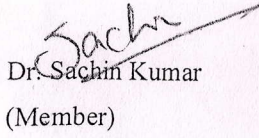 Sachin
Dr. Sachin Kumar
(Member)